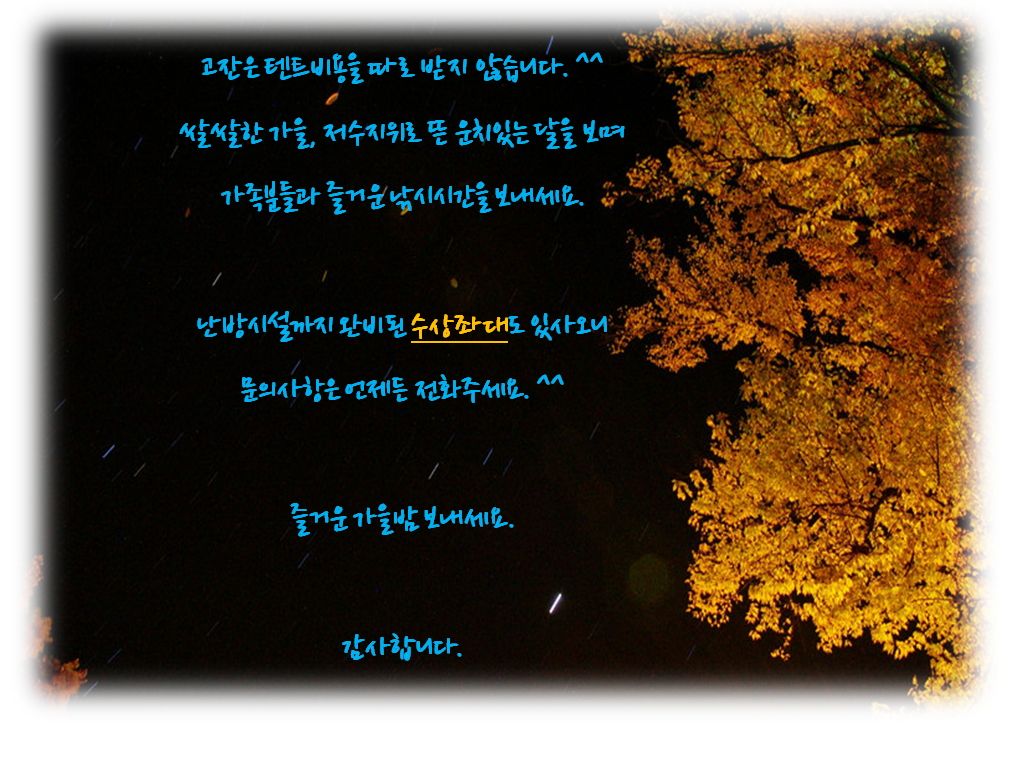 고잔은 텐트비용을 따로 받지 않습니다. ^^
쌀쌀한 가을, 저수지위로 뜬 운치있는 달을 보며
가족분들과 즐거운 낚시시간을 보내세요.
난방시설까지 완비된 수상좌대도 있사오니
문의사항은 언제든 전화주세요. ^^
즐거운 가을밤 보내세요.
감사합니다.